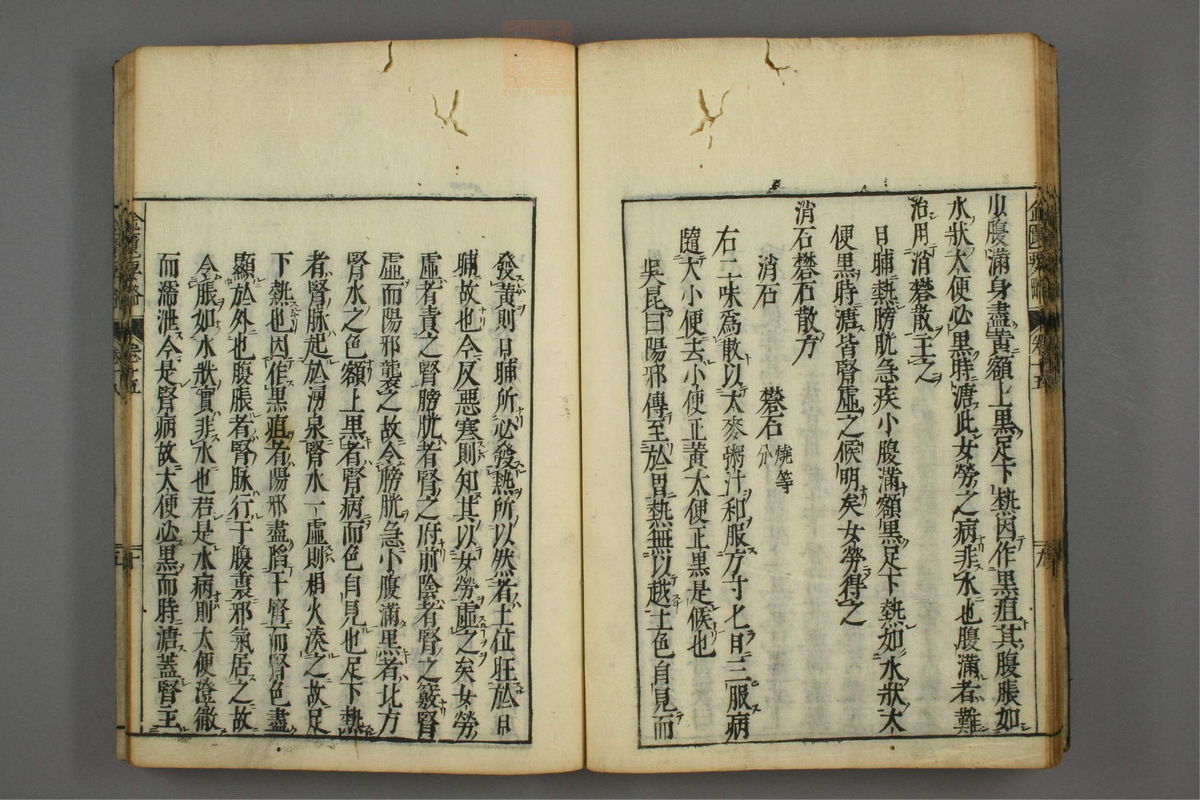 少腹滿身盡黃額上黑足下熱因作黑疸其腹脹如
水狀大便必黑時溏此女勞之病非水也腹滿者難
治用消礬散主之
日晡熱膀胱急疾小腹滿額黑足下熱如水狀大
便黑時溏皆腎虛之候明矣女勞得之
消石礬石散方
消石 礬石燒等分
右二味為散以大麥粥汁和服方寸匕日三服病
隨大小便去小便正黃大便正黑是候也
吳昆曰陽邪傳至於胃熱無以越土色自見而
發黃則日晡所必發熱所以然者土位旺於日
晡故也今反惡寒則知其以女勞虛之矣女勞
虛者責之腎膀胱者腎之府前陰者腎之竅腎
虛而陽邪襲之故令膀胱急小腹滿黑者北方
腎水之色額上黑者腎病而色自見也足下熱
者腎脉起於湧泉腎水一虛則相火湊之故足
下熱也因作黑疸者陽邪盡陷于腎而腎色盡
顯於外也腹脹者腎脉行于腹裏邪氣居之故
令脹如水狀實非水也若是水病則大便澄徹
而濡泄今是腎病故大便必黑而時溏蓋腎主